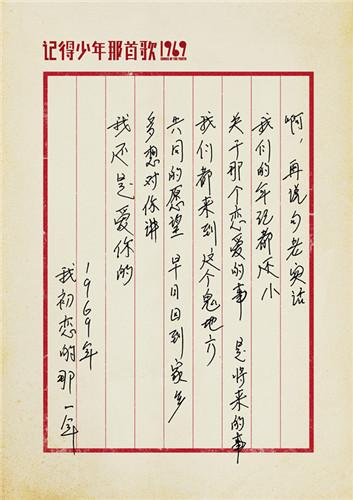 记得少年那首歌1969
SONGS OF THE YOUTH
啊，再说句老实话
我们的年纪都还小
关于那个恋爱的事 是将来的事
我们都来到这个鬼地方
共同的愿望 早日回到家乡
多想对你讲
我还是爱你的
1969年
我初恋的那一年